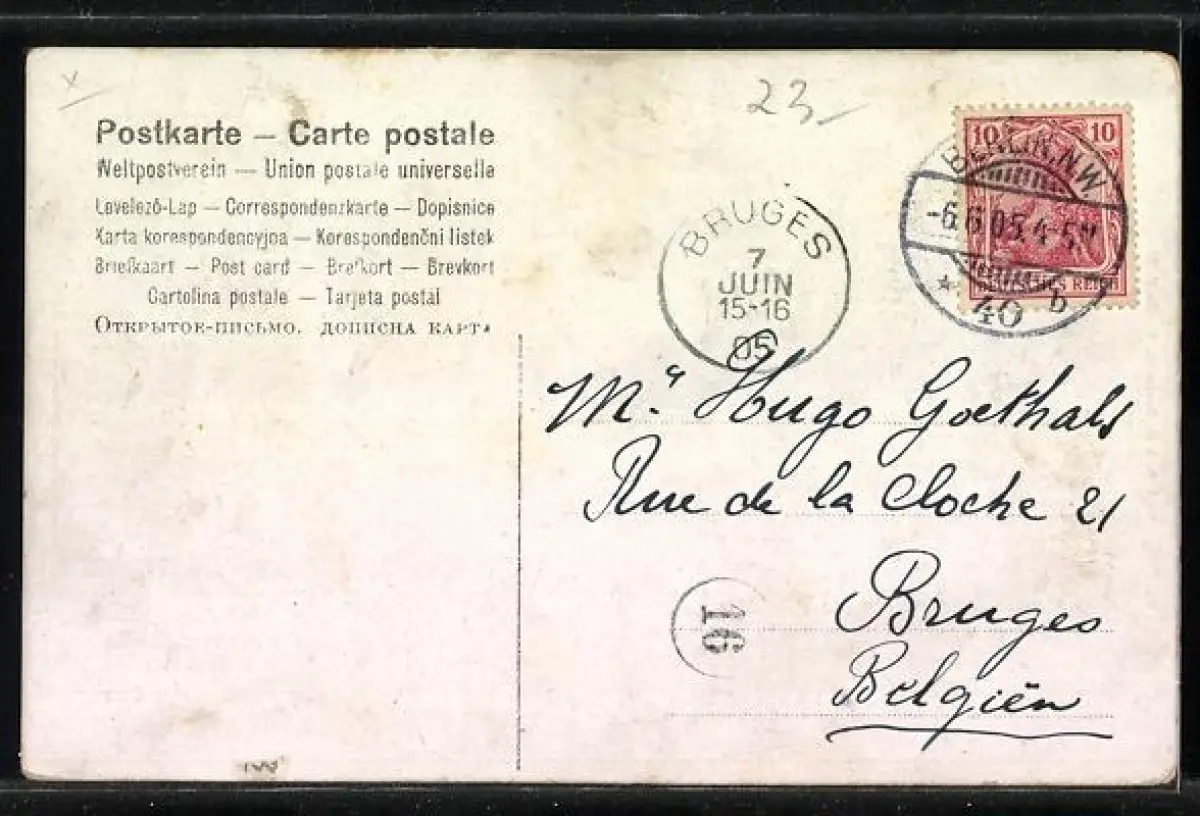 Postkarte — Carte postale
Weltpostverein — Union postale universelle
Levelező-Lap — Correspondenzkarte — Dopisnice
Karta korespondencyjna — Korespondenční listek
Briefkaart — Post card — Brefkort — Brevkort
Cartolina postale — Tarjeta postal
Открытое-письмо. дописна карт
23
10 10
DEUTSCHES REICH
BERLIN, N.W.
-6.6.05.4-5N
* 40 b
BRUGES
7
JUIN
15-16
05
M. Hugo Goethals
Rue de la Cloche 21
Bruges
Belgiën
16